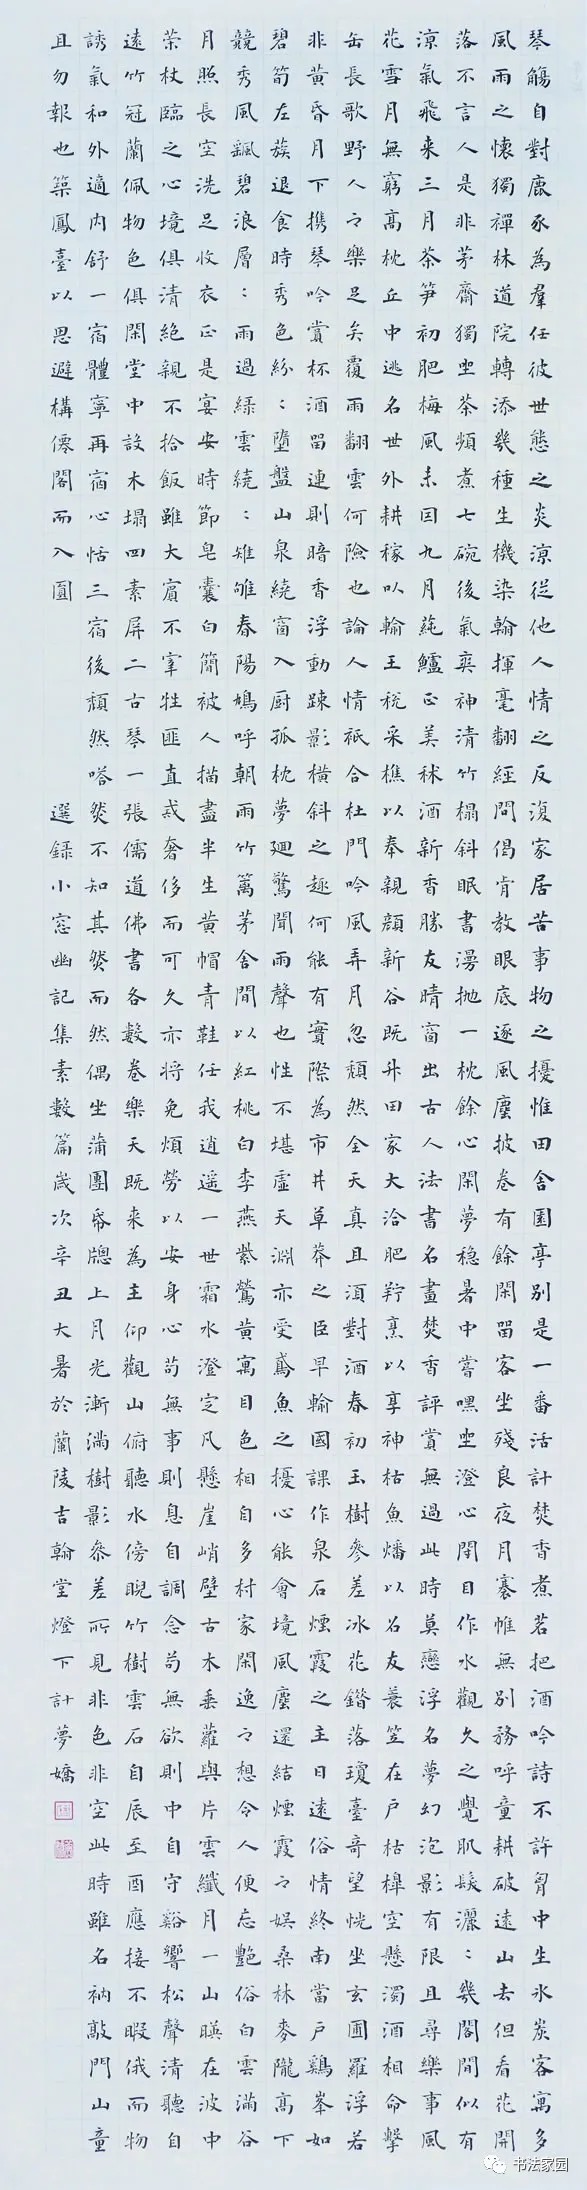 琴觴自對鹿豕為羣任彼世態之炎涼從他人情之反復家居苦事物之擾惟田舍園亭別是一番活計焚香煮茗把酒吟詩不許胷中生氷炭客寓多
風雨之懷獨禪林道院轉添幾種生機染翰揮毫翻經問偈肯教眼底逐風塵披卷有餘閑畱客坐殘良夜月褰帷無別務呼童耕破遠山去但看花開
落不言人是非茅齋獨坐茶頻煮七碗後氣爽神清竹榻斜眠書漫拋一枕餘心閑夢穩暑中嘗嘿坐澄心閉目作水觀久之覺肌髮灑:幾閣間似有
涼氣飛来三月茶笋初肥梅風未囙九月蒓鱸正美秫酒新香勝友晴窗出古人法書名畫焚香評賞無過此時莫戀浮名夢幻泡影有限且尋樂事風
花雪月無窮高枕丘中逃名世外耕稼以輸王稅采樵以奉親顏新谷既升田家大洽肥羜烹以享神枯魚燔以名友蓑笠在戶枯槔空懸濁酒相命擊
缶長歌野人之樂足矣覆雨翻雲何險也論人情祇合杜門吟風弄月忽頹然全天真且須對酒春初玉樹參差冰花錯落瓊臺奇望恍坐玄圃羅浮若
非黃昏月下携琴吟賞杯酒畱連則暗香浮動踈影橫斜之趣何能有實際為市井草莽之臣早輸國課作泉石煙霞之主日遠俗情終南當戶鷄峯如
碧筍左蔟退食時秀色紛:墮盤山泉繞窗入厨孤枕夢廻驚聞雨聲也性不堪虛天淵亦受鳶魚之擾心能會境風塵還結煙霞之娛桑林麥隴高下
競秀風飄碧浪層:雨過綠雲繞:雉雊春陽鳩呼朝雨竹籬茅舍間以紅桃白李燕紫鶯黃寓目色相自多村家閑逸之想令人便忘艷俗白雲滿谷
月照長空洗足收衣正是宴安時節皂囊白簡被人描盡半生黃帽青鞋任我逍遥一世霜水澄定凡懸崖峭壁古木垂蘿與片雲纖月一山暎在波中
䇿杖臨之心境俱清絕親不拾飯雖大賓不宰牲匪直戒奢侈而可久亦將免煩勞以安身心苟無事則息自調念苟無欲則中自守谿響松聲清聽自
遠竹冠蘭佩物色俱閑堂中設木塌四素屏二古琴一張儒道佛書各數卷樂天既来為主仰觀山俯聽水傍睨竹樹雲石自辰至酉應接不暇俄而物
誘氣和外適內舒一宿體寧再宿心恬三宿後頹然嗒然不知其然而然偶坐蒲團帋牕上月光漸滿樹影參差所見非色非空此時雖名衲敲門山童
且勿報也築鳳臺以思避構僊閣而入圓
選録小窓幽記集素數篇歲次辛丑大暑於蘭陵吉翰堂燈下計夢嬌
书法家园